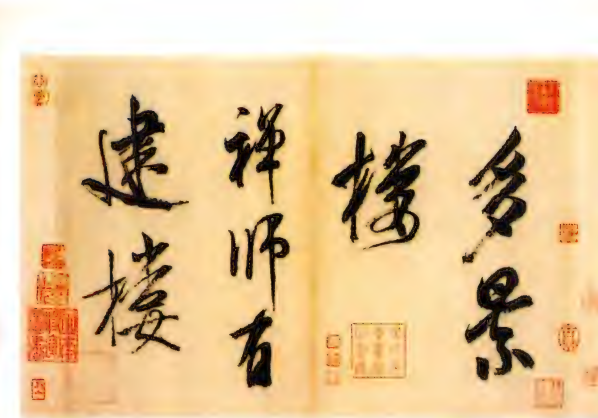 多景
樓
禅师有
建樓